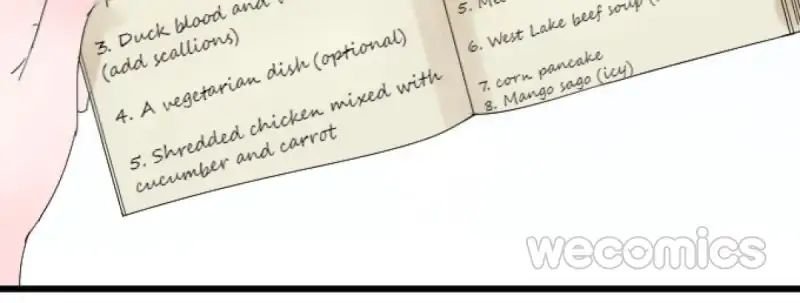 3. Duck blood and
(add scallions)
4. A vegetarian dish (optional)
5. Shredded chicken mixed with
cucumber and carrot
5.
6. West Lake beef soup (
7. corn pancake
8. Mango sago (icy)
wecomics